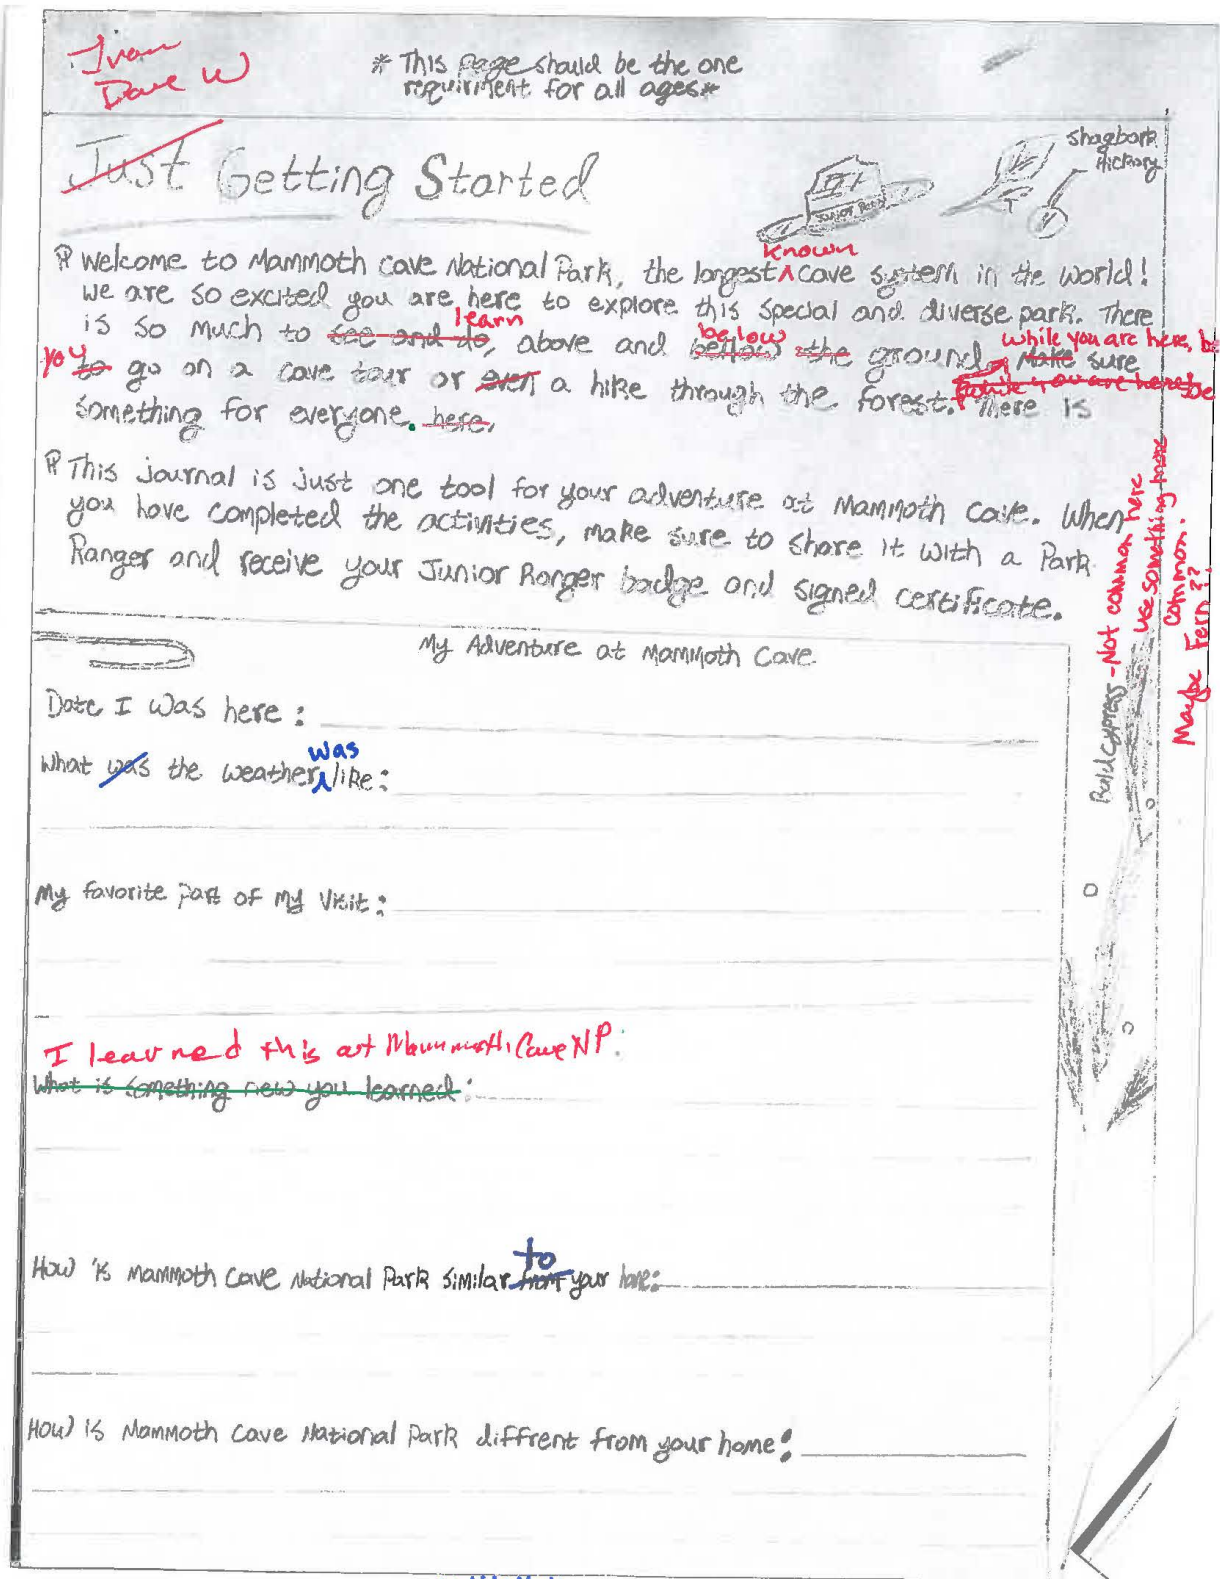 Ivan
Dave W
* This page should be the one
requirment for all ages *
Just Getting Started
Shagbark
Hickory
Junior Ranger
known
Welcome to Mammoth Cave National Park, the longest ^ cave system in the world!
We are so excited you are here to explore this special and diverse park. There
learn
below
while you are here, be
is so much to see and do, above and bellow the ground, Make sure
you
to go on a cave tour or even a hike through the forest. There is
while you are here be
something for everyone. here.
This journal is just one tool for your adventure at Mammoth Cave. When
you have completed the activities, make sure to share it with a Park
Ranger and receive your Junior Ranger badge and signed certificate.
Bald Cypress - Not common here
use something more
common.
Maybe Fern??
My Adventure at Mammoth Cave
Date I was here:
was
What was the weather ^ like:
My favorite part of my visit:
I learned this at Mammoth Cave NP:
What is something new you learned:
to
How is Mammoth Cave National Park similar from your home:
How is Mammoth Cave National Park diffrent from your home: